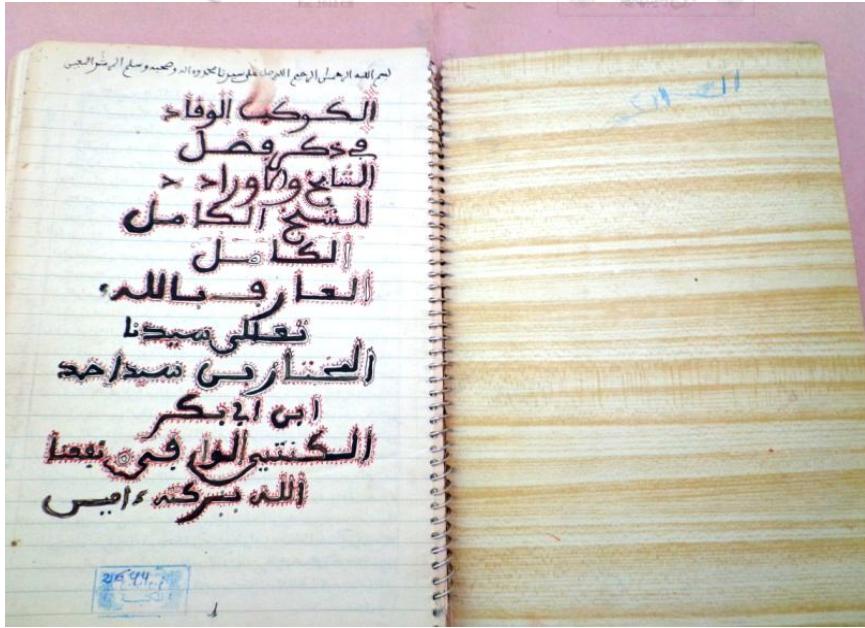 بسم الله الرحمان الرحيم اللهم صل على سيدنا محمد وءاله وصحبه وسلم
الكوكب الوقاد
في ذكر فضل
المشايخ والاوراد
للشيخ الكامل
الكامل
العارف بالله
تعالى سيدنا
المختار بن سيد احمد
ابن ابي بكر
الكنتي الوافي نفعنا
الله ببركته ءامين